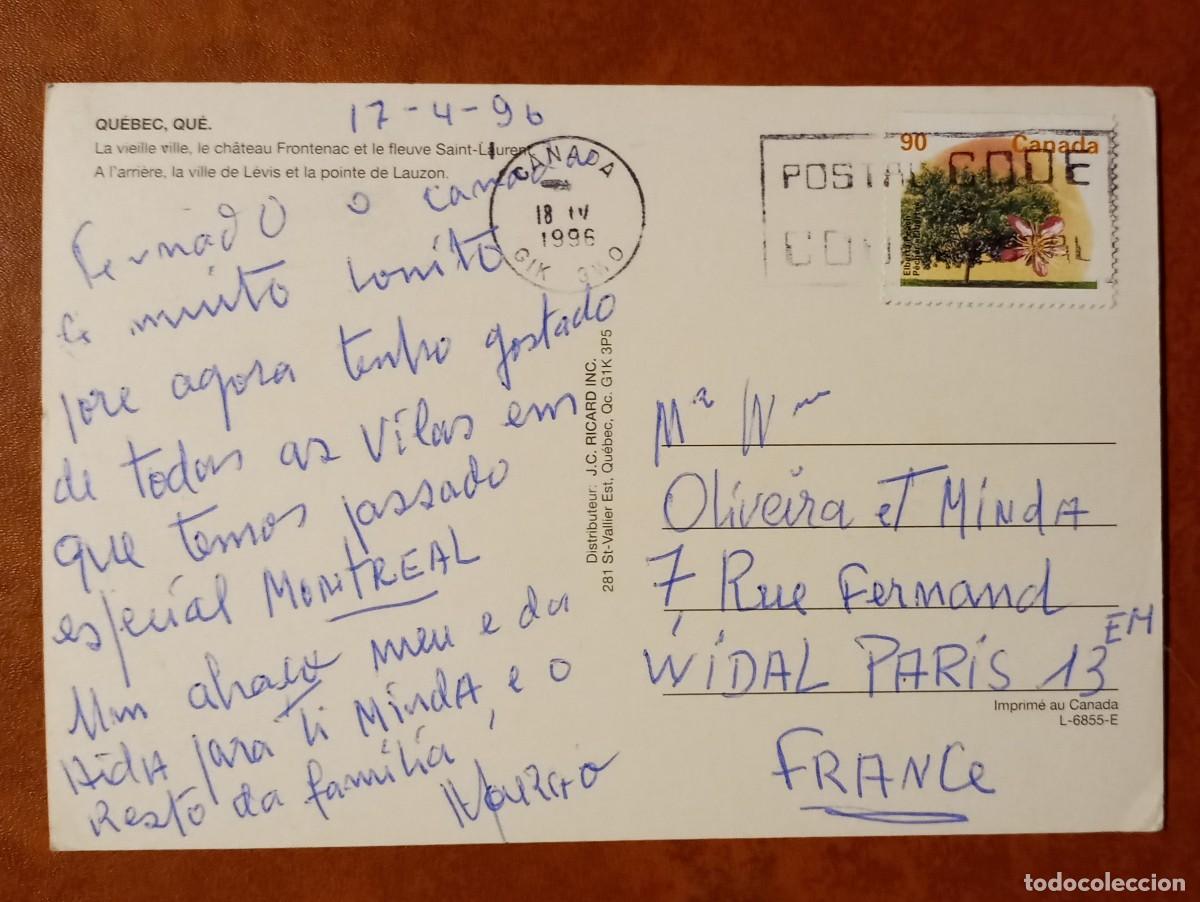 QUÉBEC, QUÉ.
La vieille ville, le château Frontenac et le fleuve Saint-Laurent
A l'arrière, la ville de Lévis et la pointe de Lauzon.
17-4-96
Fernado o canada
é muito bonito
pore agora tenho gostado
de todas as vilas em
que temos passado
especial MONTREAL
Um abraco meu e da
AidA para ti MindA, e o
Resto da família,
CANADA
18 IV
1996
G1K 3W0
POSTAL CODE
90 Canada
Distributeur: J.C. RICARD INC.
281 St-Vallier Est, Québec, Qc. G1K 3P5
Oliveira et MindA
7 Rue Fernand
WiDAL PARiS 13 EM
FRANCe
Imprimé au Canada
L-6855-E
todocoleccion